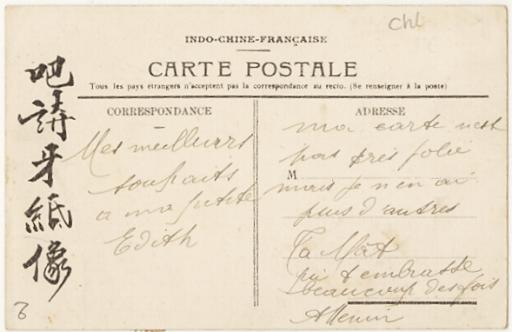 Chl
INDO-CHINE-FRANÇAISE
CARTE POSTALE
Tous les pays étrangers n'acceptent pas la correspondance au recto. (Se renseigner à la poste)
吧講牙紙像
CORRESPONDANCE
Mes meilleurs
souhaits
a ma petite
Edith
ADRESSE
ma carte n'est
pas très jolie
M
mais je n'en ai
plus d'autres
Ta
qui t'embrasse
beaucoup des fois